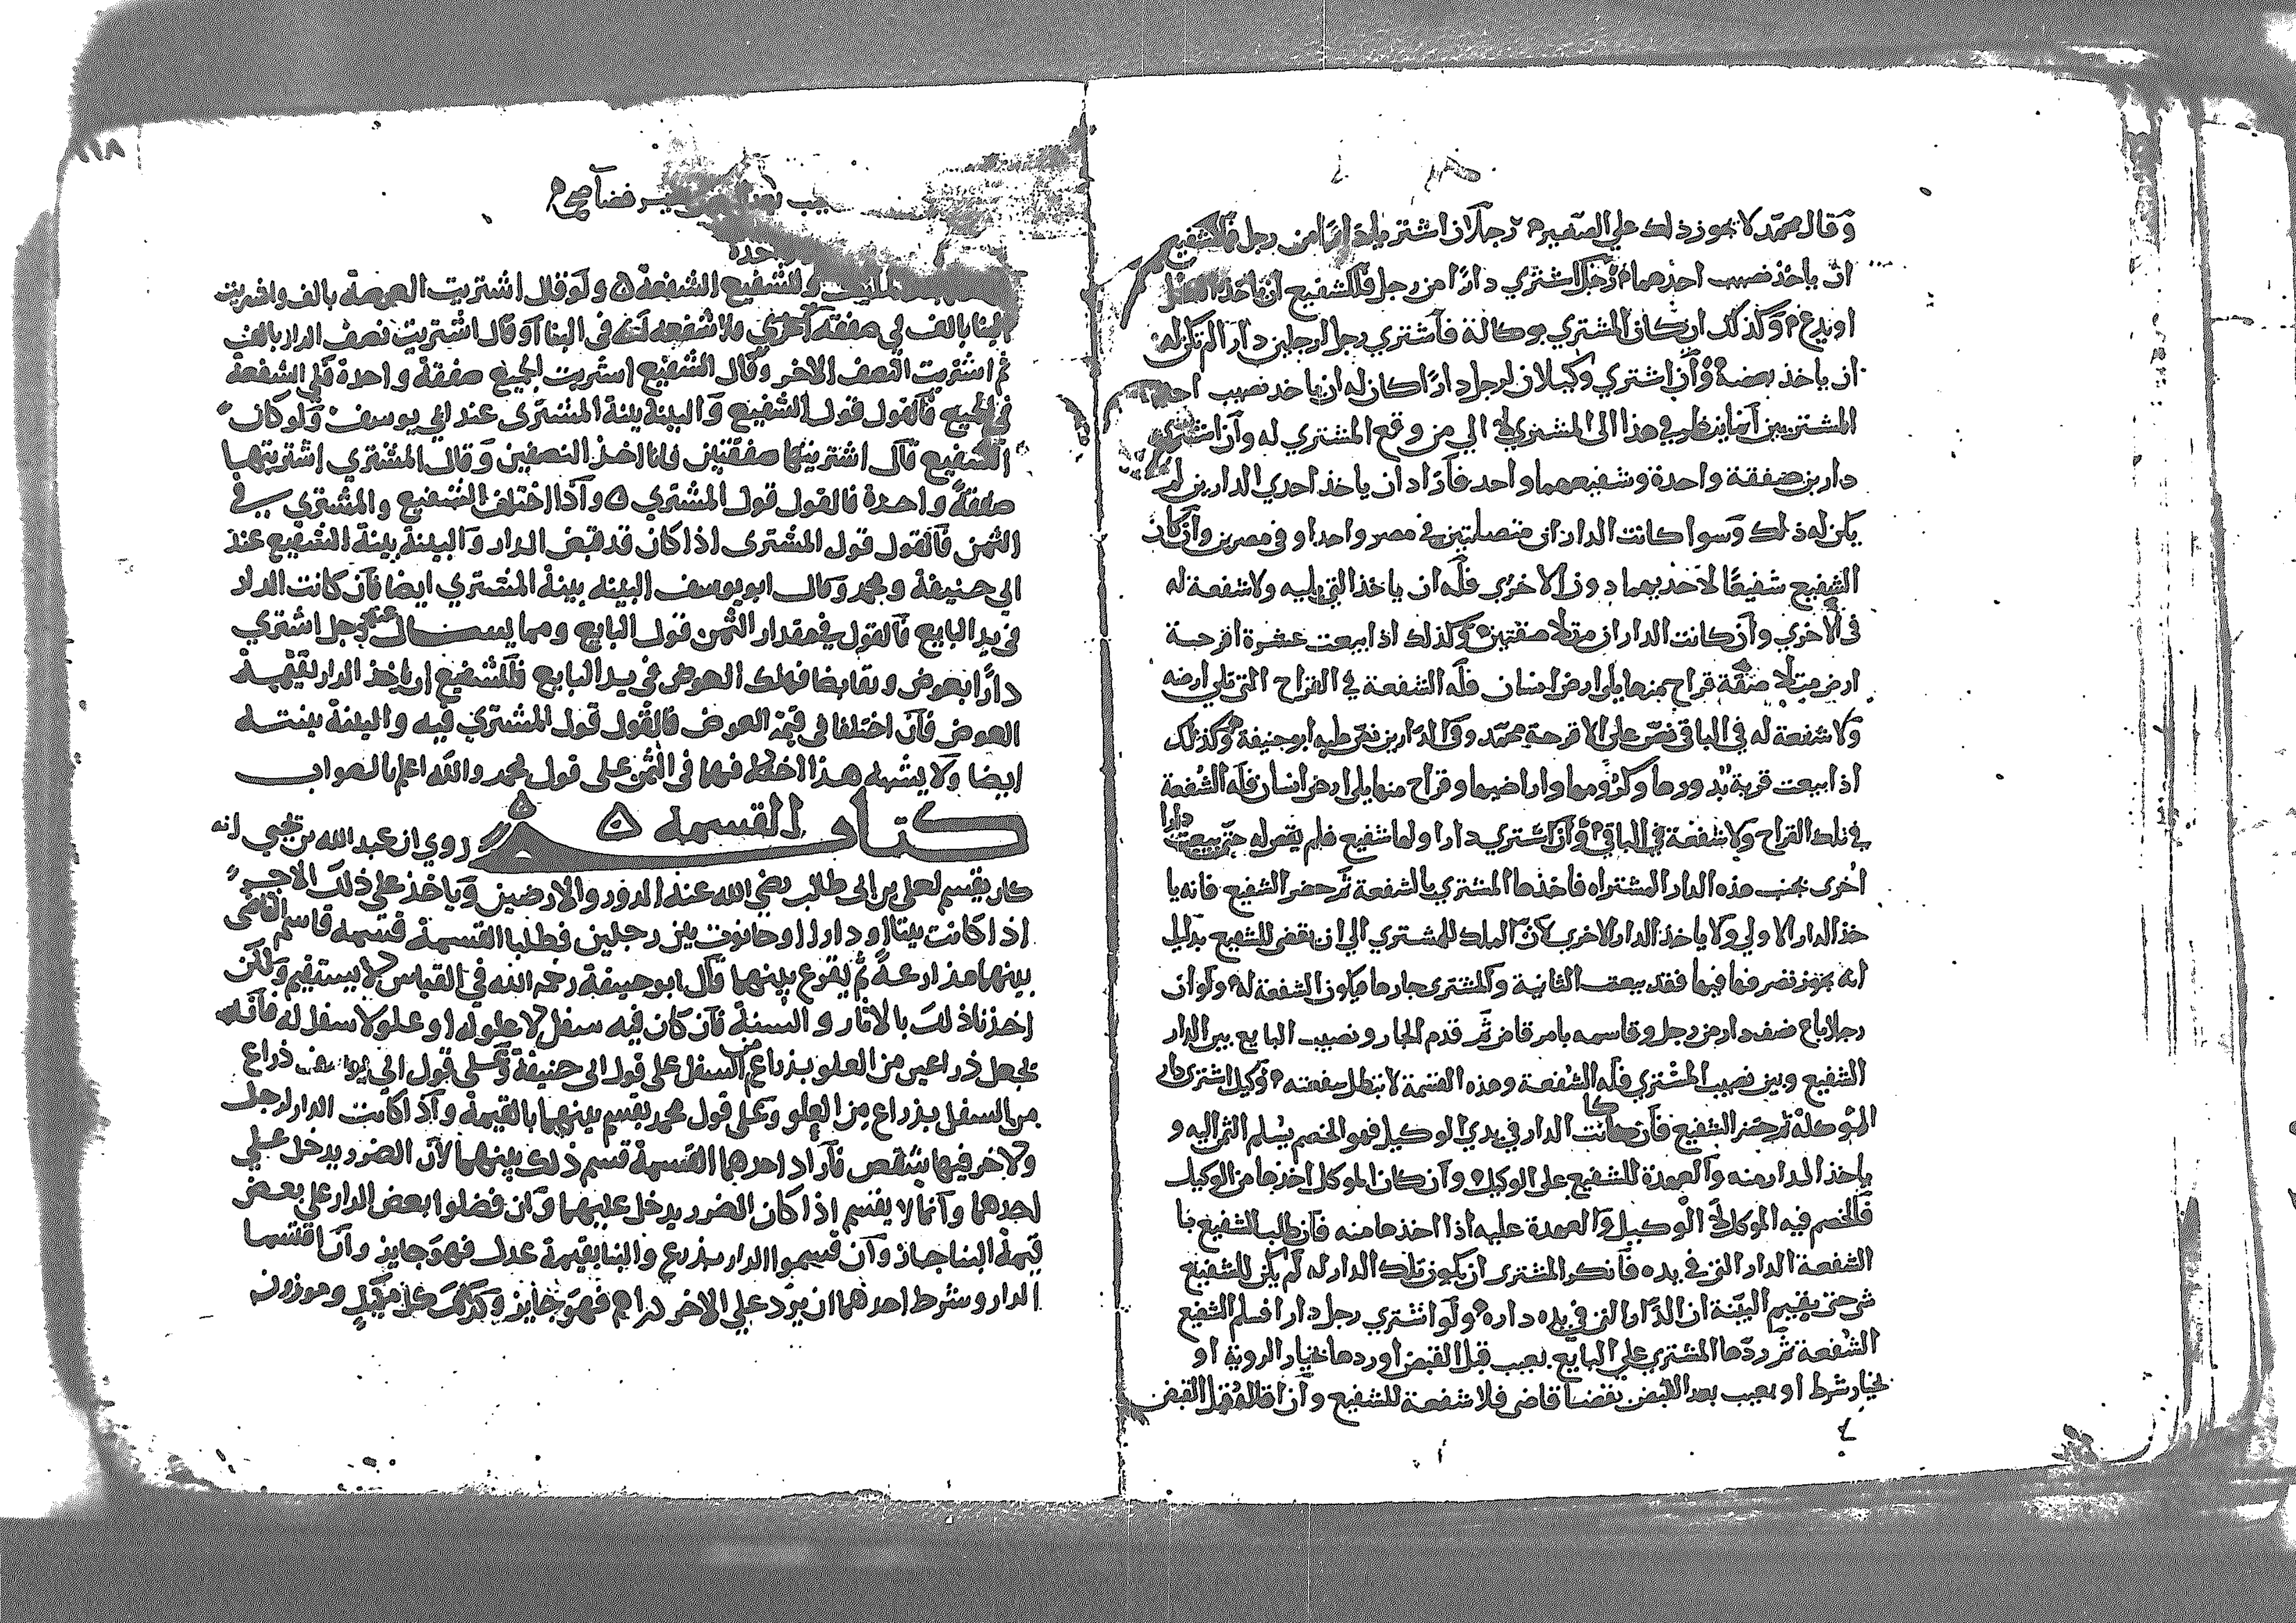 وقال محمد لا يجوز ذلك علي الصغير رجلان اشتريا من رجل فللشفيع
ان ياخذ نصيب احدهما رجل اشتري دارا من رجل فللشفيع ان ياخذ الكل
او يدع وكذلك ان كان المشتري بوكالة فاشتري رجل لرجلين دارا لم تكن له
ان ياخذ بعضه وان اشتري وكيلان لرجل دارا كان له ان ياخذ نصيب احد
المشتريين انما ينظر في هذا الى المشتري لا الي من وقع المشتري له وان اشتري
دارين صفقة واحدة وشفيعهما واحد فاراد ان ياخذ احدي الدارين لم
يكن له ذلك وسوا كانت الداران متصلتين في مصر واحد او في مصرين وان كان
الشفيع شفيعا لاحديهما دون الاخري فله ان ياخذ التي يليه ولا شفعة له
في الاخري وان كانت الداران متلاصقتين وكذلك اذا بيعت عشرة اقرحة
ارض متلاصقة قراح منها يلي ارض انسان فله الشفعة في القراح التي تلي ارضه
ولا شفعة له في الباقي نص على الاقرحة محمد وفي الدارين نص عليه ابو حنيفة وكذلك
اذا بيعت قرية بدورها وكرومها واراضيها وقراح منها يلي ارض انسان فله الشفعة
في تلك القراح ولا شفعة في الباقي وان اشتري دارا ولها شفيع فلم يقض له حتى بيعت دارا
اخرى بجنب هذه الدار المشتراه فاخذها المشتري بالشفعة ثم حضر الشفيع فانه يا
خذ الدار الاولي ولا ياخذ الدار الاخري لان الملك للمشتري الي ان يقضي للشفيع بدليل
انه يجوز تصرفها فيها فقد بيعت الثانية والمشتري جارها فيكون الشفعة له ولو ان
رجلا باع نصف دار من رجل وقاسمه بامر قاض ثم قدم الجار ونصيب البايع بين الدار
الشفيع وبين نصيب المشتري فله الشفعة وهذه القسمة لا تبطل شفعته وكيل اشترى دار
الموكله ثم حضر الشفيع فان كانت الدار في يدي الوكيل فهو الخصم يسلم الثمن اليه و
ياخذ الدار منه والعهدة للشفيع على الوكيل وان كان الموكل اخذها من الوكيل
فالخصم فيه الموكل لا الوكيل والعهدة عليه اذا اخذها منه فان طلب الشفيع با
الشفعة الدار التي في يده فانكر المشتري ان يكون تلك الدار له لم يكن للشفيع
شي حتى يقيم البينة ان الدار التي في يده داره ولو اشتري رجل دارا فسلم الشفيع
الشفعة ثم ردها المشتري على البايع بعيب قبل القبض او ردها بخيار الروية او
بخيار شرط او بعيب بعد القبض بقضا قاضي فلا شفعة للشفيع وان اقاله قبل القبض
١١٨
بعيب بعد القبض بغير قضا صح
وللشفيع الشفعة ولو قال اشتريت العرصة بالف واشتريت
البنا بالف في صفقة اخري فلا شفعه لك في البنا او قال اشتريت نصف الدار بالف
ثم اشتريت النصف الاخر وقال الشفيع اشتريت الجميع صفقة واحدة فلي الشفعة
في الجميع فالقول قول الشفيع والبينة بينة المشتري عند ابي يوسف ولو كان
الشفيع قال اشتريتها صفقتين فانا اخذ النصفين وقال المشتري اشتريتها
صفقة واحدة فالقول قول المشتري واذا اختلف الشفيع والمشتري في
الثمن فالقول قول المشتري اذا كان قد قبض الدار والبينة بينة الشفيع عند
ابي حنيفة ومحمد وقال ابو يوسف البينه بينة المشتري ايضا فان كانت الدار
في يد البايع فالقول في مقدار الثمن قول البايع ومما يسال عنه رجل اشتري
دارا بعوض وتقابضا فهلك العوض في يد البايع فللشفيع ان ياخذ الدار بقيمة
العوض فان اختلفا في قيمة العوض فالقول قول المشتري فيه والبينة بينته
ايضا ولا يشبه هذا اختلافهما في الثمن على قول محمد والله اعلم بالصواب
كتاب القسمة روي ان عبد الله بن يحيى انه
كان يقسم لعلي بن ابي طالب رضي الله عنه الدور والارضين وياخذ علي ذلك الاجر
اذا كانت بيتا او دارا او حانوت بين رجلين فطلبا القسمة قسمه قاسم القاضي
بينهما مذارعة ثم يقرع بينهما قال ابو حنيفة رحمه الله في القياس لا يستقيم ولكن
اخذنا ذلك بالاثار والسنة فان كان فيه سفل لا علو له او علو لا سفل له فانه
يجعل ذراعين من العلو بذراع من السفل على قول ابى حنيفة وعلى قول ابي يوسف ذراع
من السفل بذراع من العلو وعلى قول محمد يقسم بينهما بالقيمة واذا كانت الدار لرجل
ولاخر فيها شقص فاراد احدهما القسمة قسم ذلك بينهما لان الضرر يدخل علي
احدهما وانما لا يقسم اذا كان الضرر يدخل عليهما وان فضلوا بعض الدار على بعض
قيمة البنا جاز وان قسموا الدار بذرع والبنا بقيمة عدل فهو جايز وان اقتسما
الدار وشرط احدهما ان يرد علي الاخر دراهم فهو جايز وكذلك كل مكيل وموزون